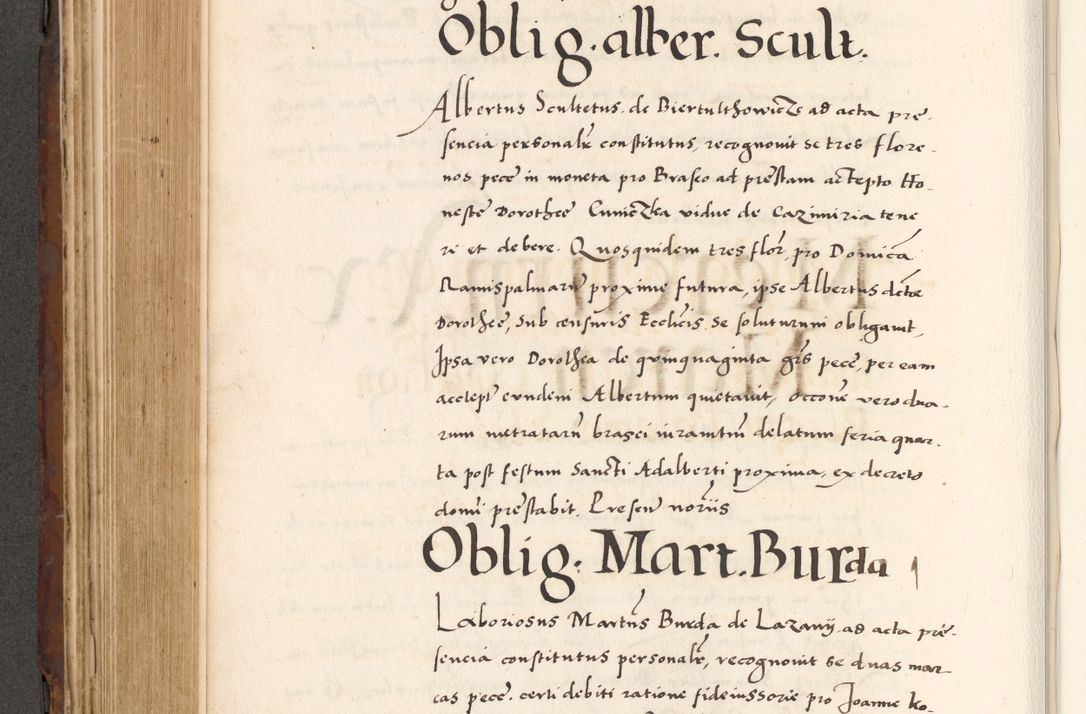 Oblig. alber. Scult.
Albertus Scultetus de Biertulthowicze ad acta pre-
sencia personalr constitutus, recognovit se tres flore-
nos pece in moneta pro Braseo ad prestam accepto Ho-
neste Dorothee Cuniczka vidue de Cazimiria tene
ri et debere. Quosquidem tres flor, pro Dominica
Ramispalmaru proxime futura, ipse Albertus dicte
Dorothee, sub censuris Ecclicis se soluturum obligavit,
Ipsa vero Dorothea de quinquaginta grs pece, per eam
accept eundem Albertum quietavit, occone vero dua-
rum metrataru brasei iuramtu delatum feria quar-
ta post festum Sancti Adalberti proxima, ex decreto
domi prestabit. Presen noriis
Oblig. Mart. Burda
Laboriosus Martus Burda de Lazany ad acta pre-
sencia constitutus personalr, recognovit se duas mar-
cas pece. certi debiti ratione fideiussorie pro Joanne Ko-